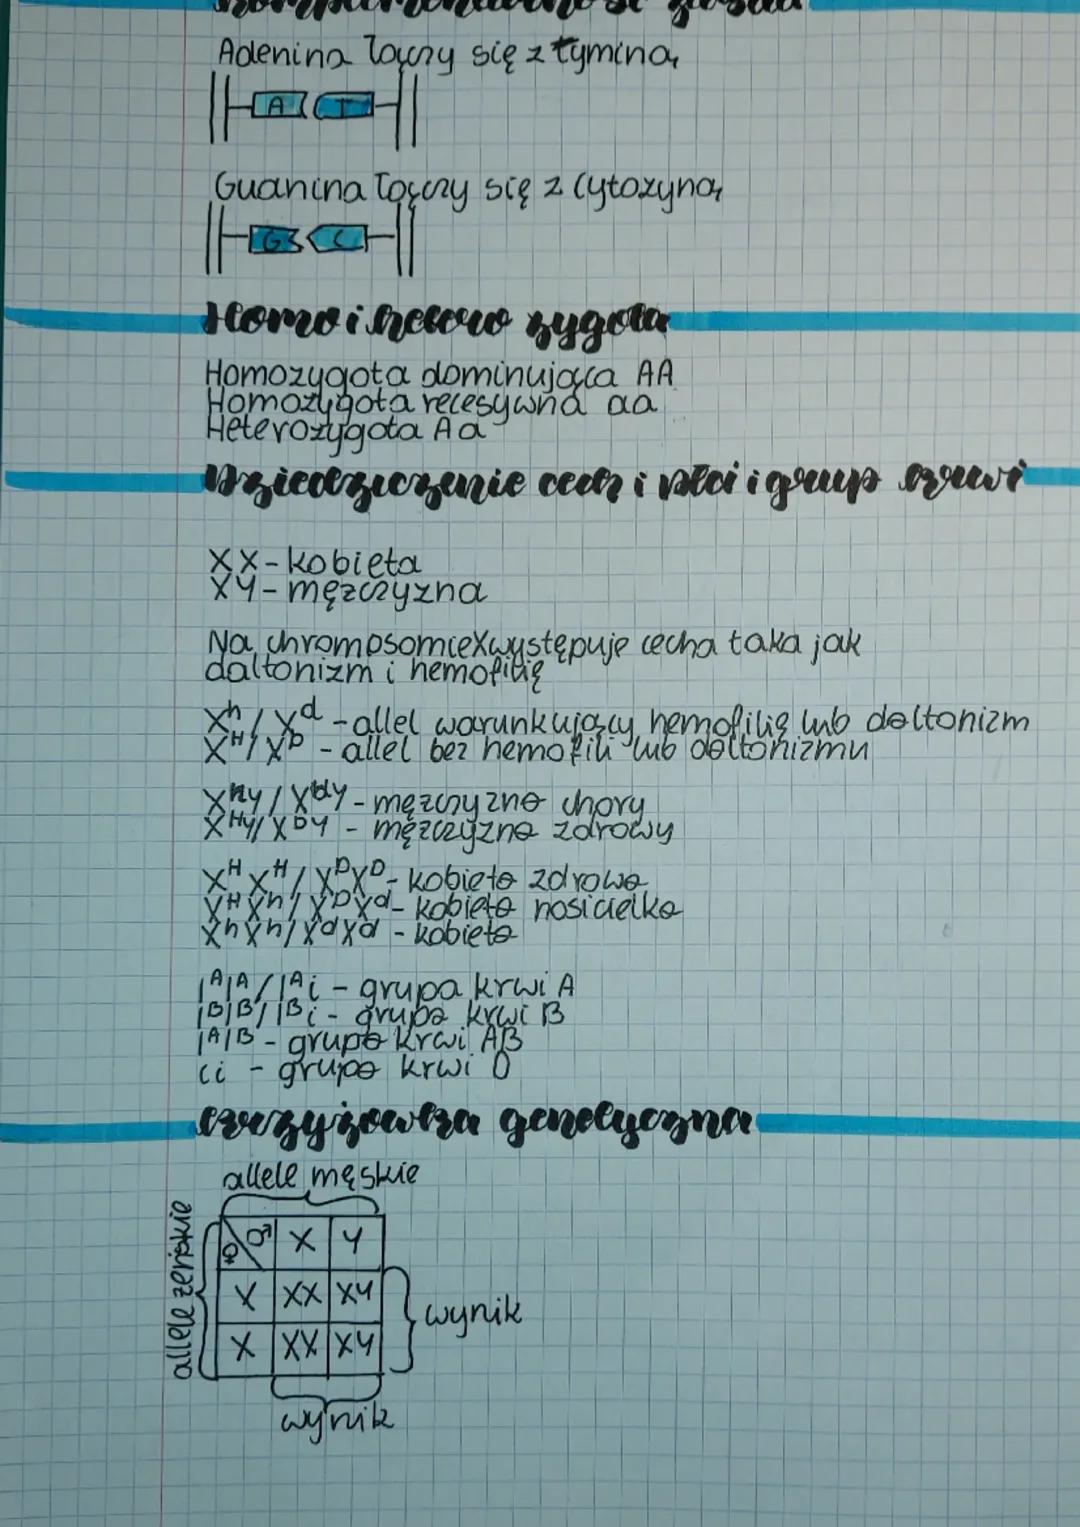 Komplementarność zasad
Adenina łączy się z tyminą
A T
Guanina łączy się z Cytozyną
G C
Homo i hetero zygota
Homozygota dominująca AA
Homozygota recesywna aa
Heterozygota Aa
Dziedziczenie cech i płci i grup krwi
XX - kobieta
XY - mężczyzna
Na chromosomie X występuje cecha taka jak
daltonizm i hemofilię
Xʰ / Xᵈ - allel warunkujący hemofilię lub daltonizm
Xᴴ / Xᴰ - allel bez hemofili lub daltonizmu
XʰY / XᵈY - mężczyzna chory
XᴴY / XᴰY - mężczyzna zdrowy
XᴴXᴴ / XᴰXᴰ - kobieta zdrowa
XᴴXʰ / XᴰXᵈ - kobieta nosicielka
XʰXʰ / XᵈXᵈ - kobieta
IᴬIᴬ / Iᴬi - grupa krwi A
IᴮIᴮ / Iᴮi - grupa krwi B
IᴬIᴮ - grupa krwi AB
ii - grupa krwi 0
krzyżówka genetyczna
allele męskie
allele żeńskie
♀ ♂ X Y
X XX XY
wynik
X XX XY
wynik